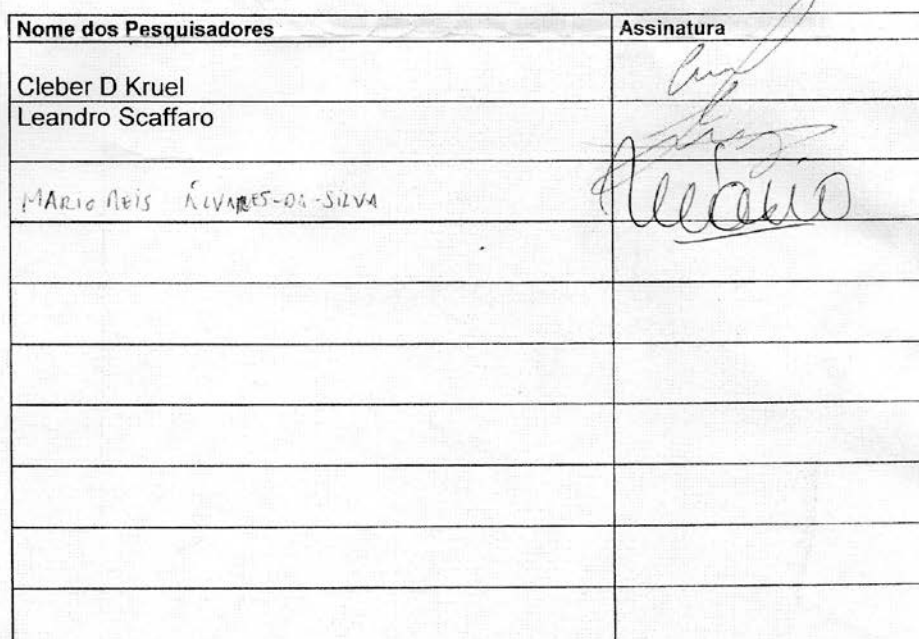 Nome dos Pesquisadores Assinatura
Cleber D Kruel
Leandro Scaffaro
MARIO REIS ÁLVARES-DA-SILVA